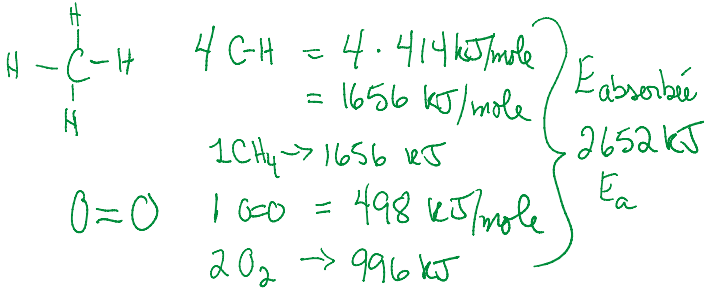 H
H - C - H
H
4 C-H = 4 · 414 kJ/mole
= 1656 kJ/mole
1CH₄ → 1656 kJ
O=O
1 O=O = 498 kJ/mole
2 O₂ → 996 kJ
E absorbée
2652 kJ
Eₐ